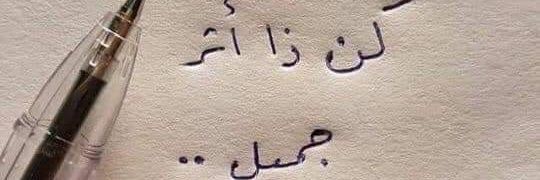 كن ذا أثر
جميل ..